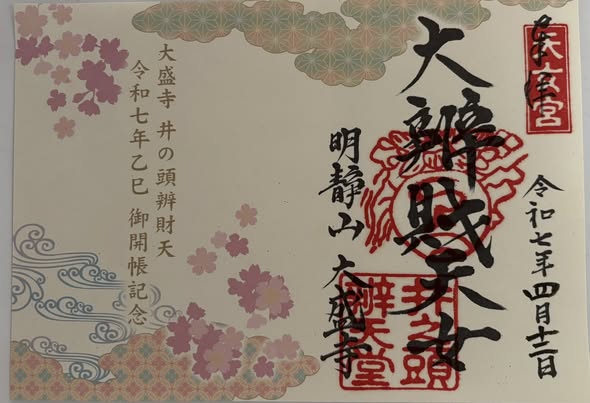 奉拝
天女宮
令和七年四月十二日
大辨財天女
井之頭
辨天堂
明静山 大盛寺
大盛寺 井の頭辨財天
令和七年乙巳 御開帳記念